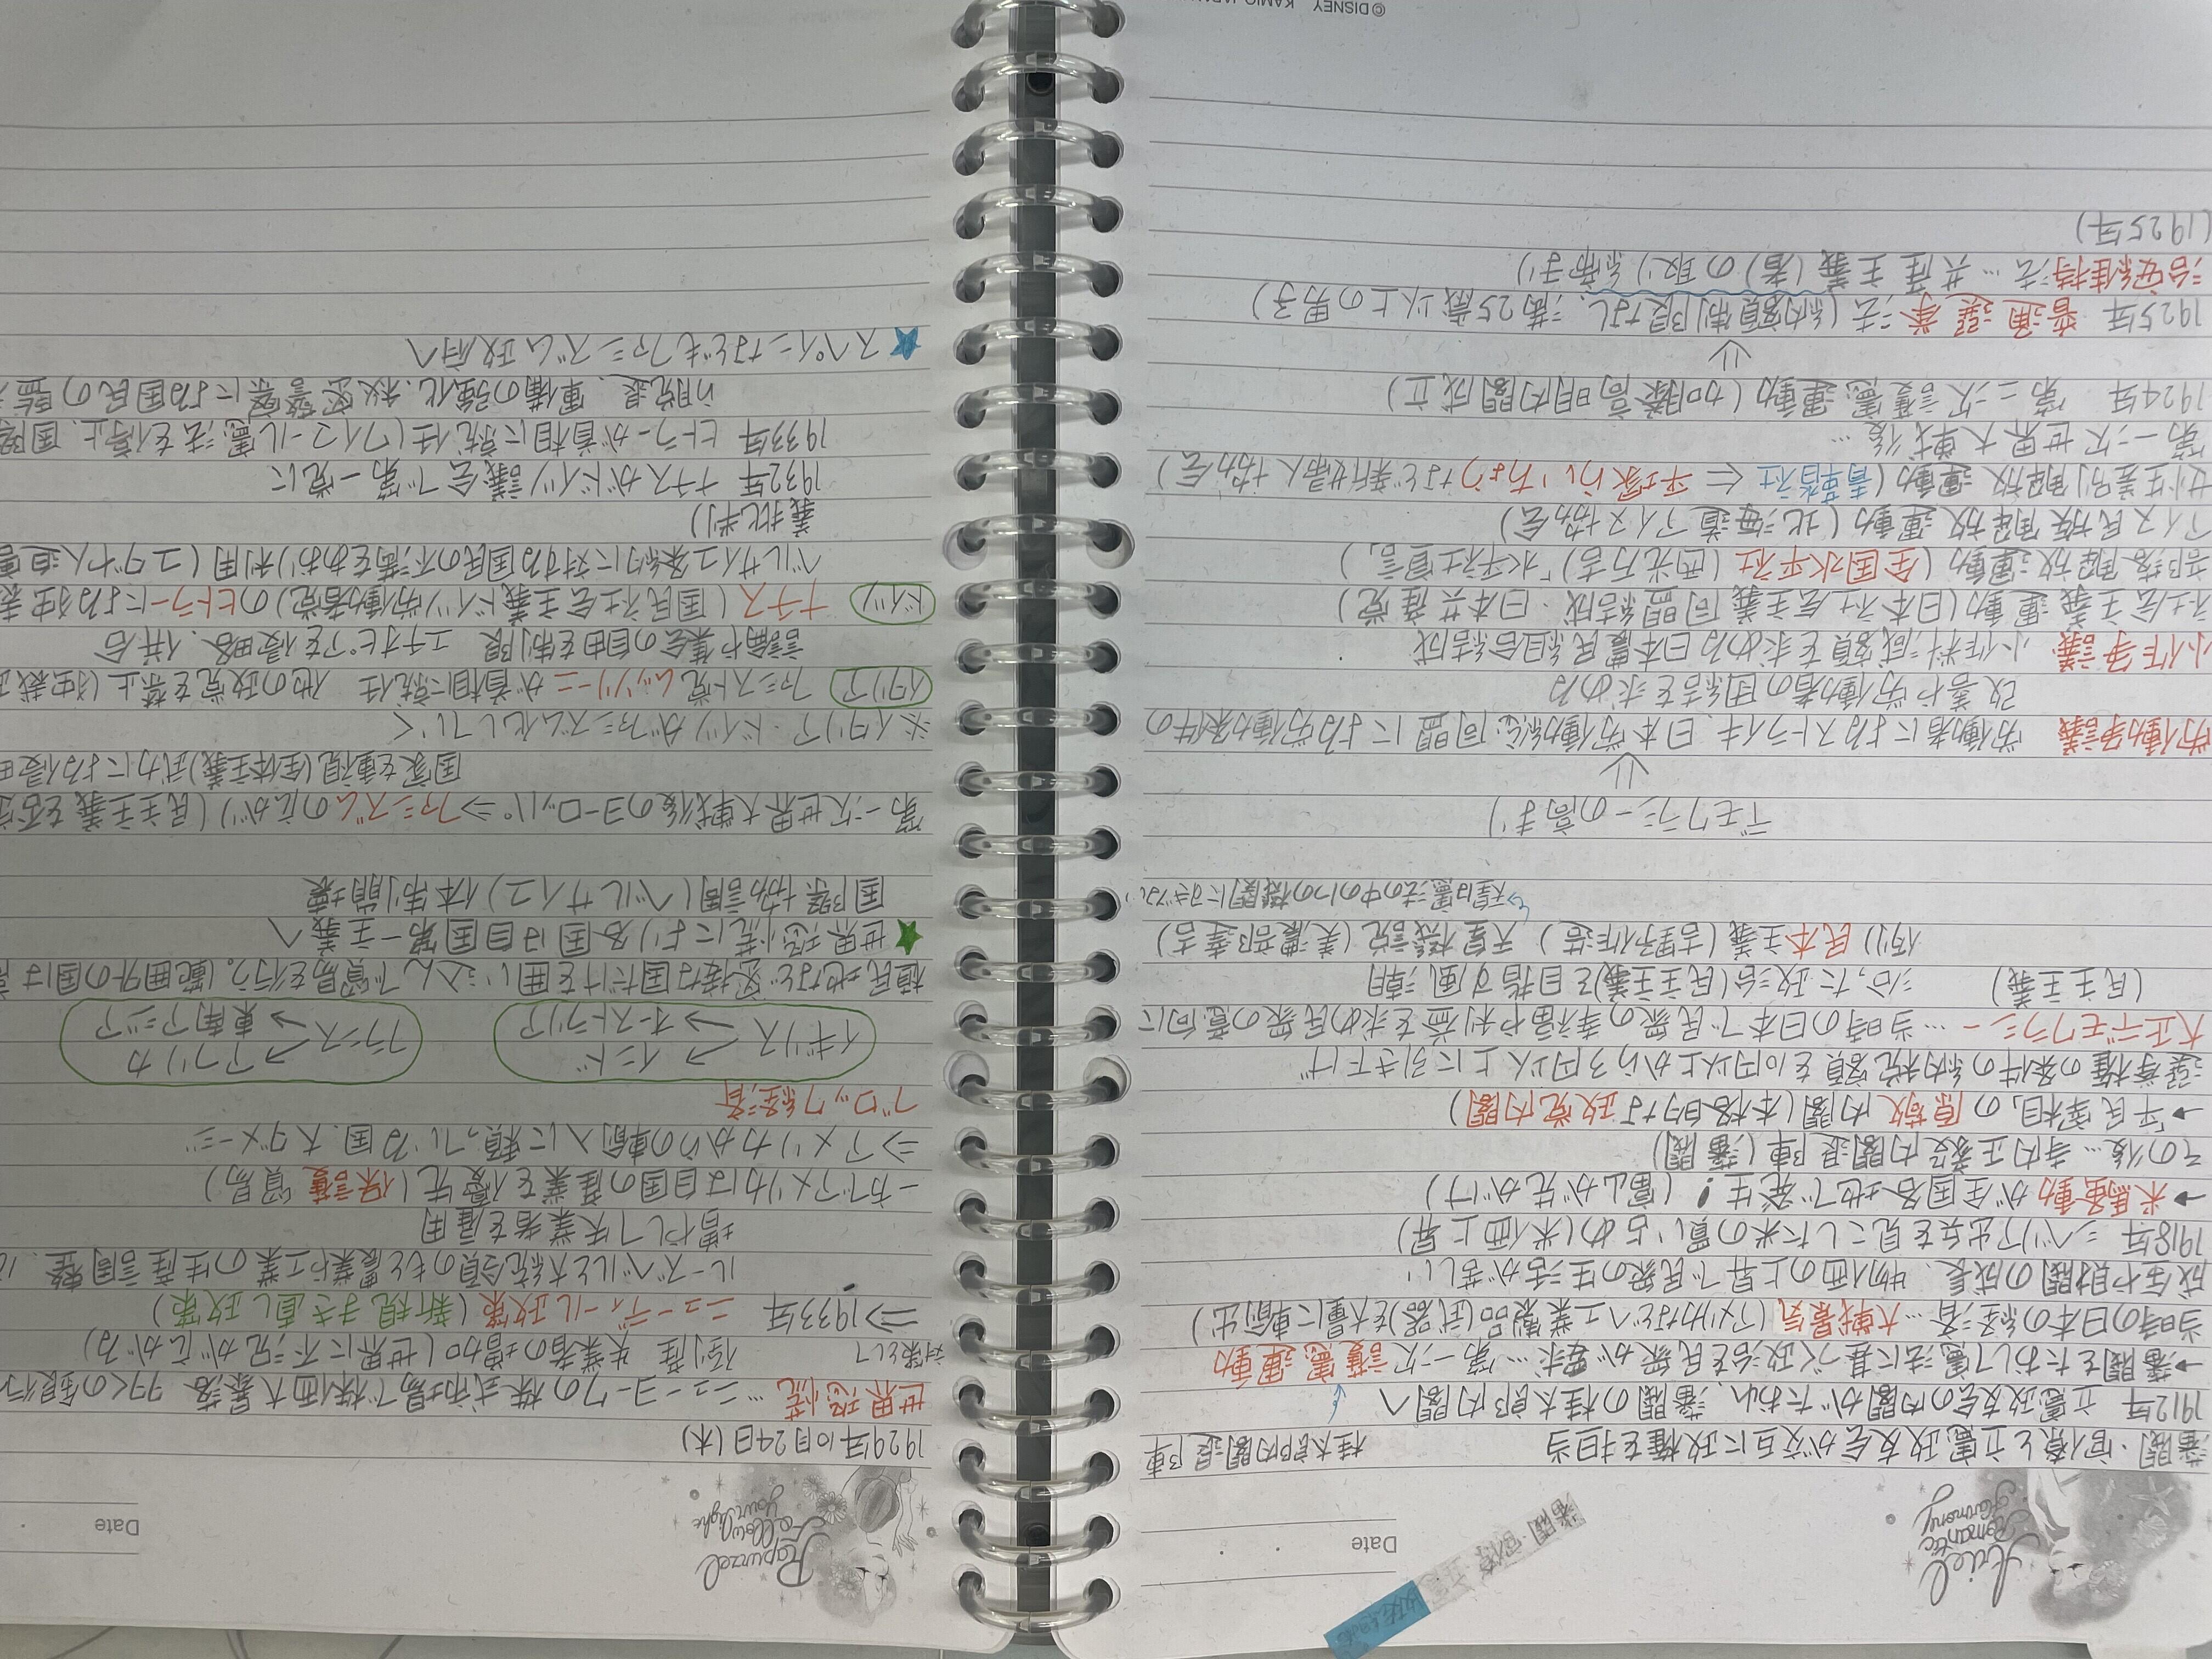 Ariel
Romantic
Harmony
Date
藩閥・官僚と立憲政友会が交互に政権を担当
桂太郎内閣退陣
1912年 立憲政友会の内閣がたおれ、藩閥の桂太郎内閣へ
→藩閥をたおして憲法に基づく政治を民衆が要求…第一次護憲運動
当時の日本の経済…大戦景気(アメリカなどへ工業製品(武器)を大量に輸出)
成金や財閥の成長、物価の上昇で民衆の生活が苦しい
1918年 シベリア出兵を見こした米の買い占め(米価上昇)
→米騒動が全国各地で発生!(富山が先がけ)
その後…寺内正毅内閣退陣(藩閥)
→「平民宰相」の原敬内閣(本格的な政党内閣)
選挙権の条件の納税額を10円以上から3円以上に引き下げ
大正デモクラシー…当時の日本で民衆の幸福や利益を求め民衆の意向に
(民主主義) 沿った政治(民主主義)を目指す風潮
例) 民本主義(吉野作造) 天皇機関説(美濃部達吉)
→天皇は憲法の中の1つの機関にすぎない
デモクラシーの高まり
⇓
労働争議 労働者によるストライキ、日本労働総同盟による労働条件の
改善や労働者の団結を求める
小作争議 小作料減額を求める日本農民組合結成
社会主義運動(日本社会主義同盟結成・日本共産党)
部落解放運動(全国水平社(西光万吉)「水平社宣言」)
アイヌ民族解放運動(北海道アイヌ協会)
女性差別解放運動(青鞜社⇐平塚らいちょうなど新婦人協会)
第一次世界大戦後…
1924年 第二次護憲運動(加藤高明内閣成立)
⇓
1925年 普通選挙法(納税額制限なし、満25歳以上の男子)
治安維持法…共産主義(者)の取り締まり
(1925年)
© DISNEY KAMIO
Rapunzel
Follow
your light
Date
1929年10月24日(木)
世界恐慌…ニューヨークの株式市場で株価大暴落 多くの銀行
対策として
倒産 失業者の増加(世界に不況が広がる)
⇒1933年 ニューディール政策(新規まき直し政策)
ルーズベルト大統領のもと農業や工業の生産調整、
増やして失業者を雇用
一方でアメリカは自国の産業を優先(保護貿易)
⇒アメリカからの輸入に頼っている国、大ダメージ
ブロック経済
イギリス→インド
→オーストラリア
フランス→アフリカ
→東南アジア
植民地など密接な国だけを囲い込んで貿易を行う。(範囲外の国は
★世界恐慌により各国は自国第一主義へ
国際協調(ベルサイユ)体制崩壊
第一次世界大戦後のヨーロッパ⇒ファシズムの広がり(民主主義を否定
国家を重視(全体主義)武力による侵
※イタリア・ドイツがファシズム化していく
イタリア ファシスト党ムッソリーニが首相に就任 他の政党を禁止(独裁
言論や集会の自由を制限 エチオピアを侵略、併合
ドイツ ナチス(国民社会主義ドイツ労働者党)のヒトラーによる独裁
ベルサイユ条約に対する国民の不満をあおり利用(ユダヤ人迫害
義批判)
1932年 ナチスがドイツ議会で第一党に
1933年 ヒトラーが首相に就任(ワイマール憲法を停止、国際
脱退、軍備の強化、秘密警察による国民の監
★スペインなどもファシズム政府へ